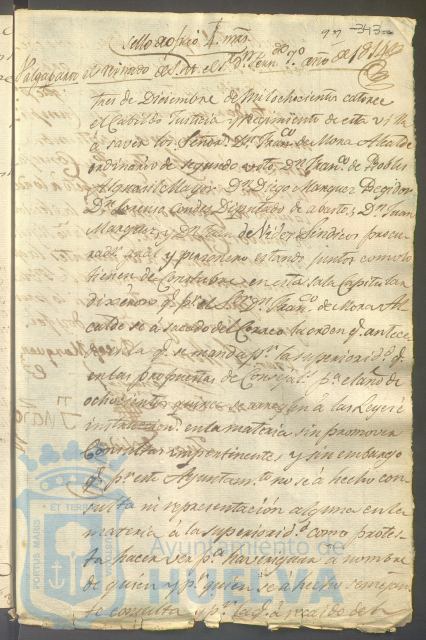 97 -343-
Sello de ofico 4. mrs.
Valga para el reinado de S. M. el Sr Dn Fern.do 7o año de 1814
tres de Diciembre de mil ochocientos catorce
el Cabildo Justicia y regimiento de esta villa
a saver los Señores Dn Juan de Mora Alcalde
ordinario de segundo voto, Dn Franco. de Robles
Alguacil Mayor, Dn Diego Marquez Regidor
Dn Lorenzo Diputado de abastos, Dn Juan
Marquez, y Dn Juan de Sindicos procu
rador y personero estando juntos como lo
tienen de Costumbre en esta Sala Capitular
dixeron qe. pr. el Sor. Dn Juan de Mora Al
calde se a sacado del Correo la orden qe. antece
de en la qe. se manda pr. la superioridad qe.
en las propuestas de Consejales pa. el año de
ochocientos quince se arreglen á las Leyes é
instruccion. en la materia sin promover
Consultas impertinentes, y sin embargo
qe. pr. este Ayuntamto. no se á hecho con
sulta ni representación alguna en la
materia á la superioridad como protes
ta hacer ver pa. haveriguar á nombre
de quien y pr. quien se a hecho semejan
te consulta y pr. la qe. á recaido
PORTUS MARIS ET TERRAE
Ayuntamiento de
HUELVA